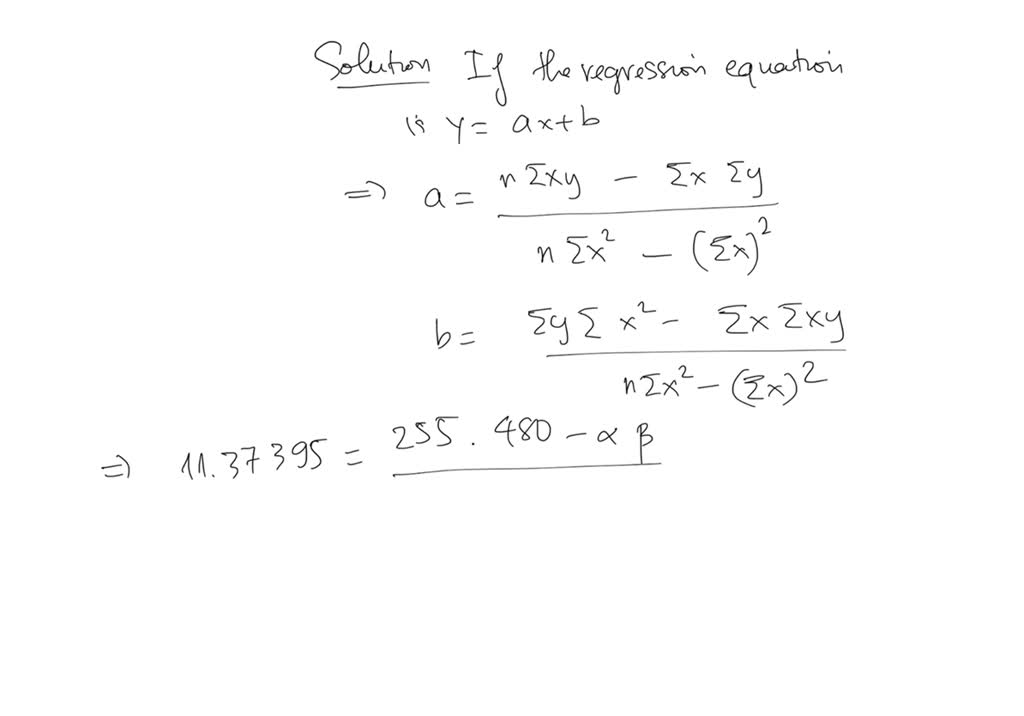 Solution If the regression equation
is y = ax+b
=> a = n Σxy - Σx Σy
n Σx² - (Σx)²
b = Σy Σ x² - Σx Σxy
nΣx² - (Σx)²
=> 11.37395 = 255 . 480 - α β